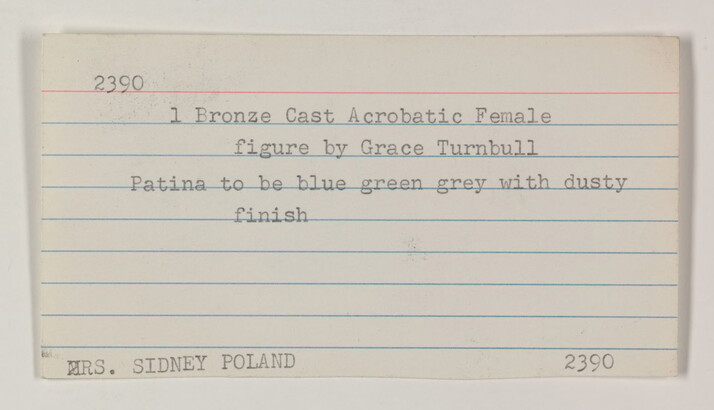 2390
1 Bronze Cast Acrobatic Female
figure by Grace Turnbull
Patina to be blue green grey with dusty
finish
MRS. SIDNEY POLAND 2390